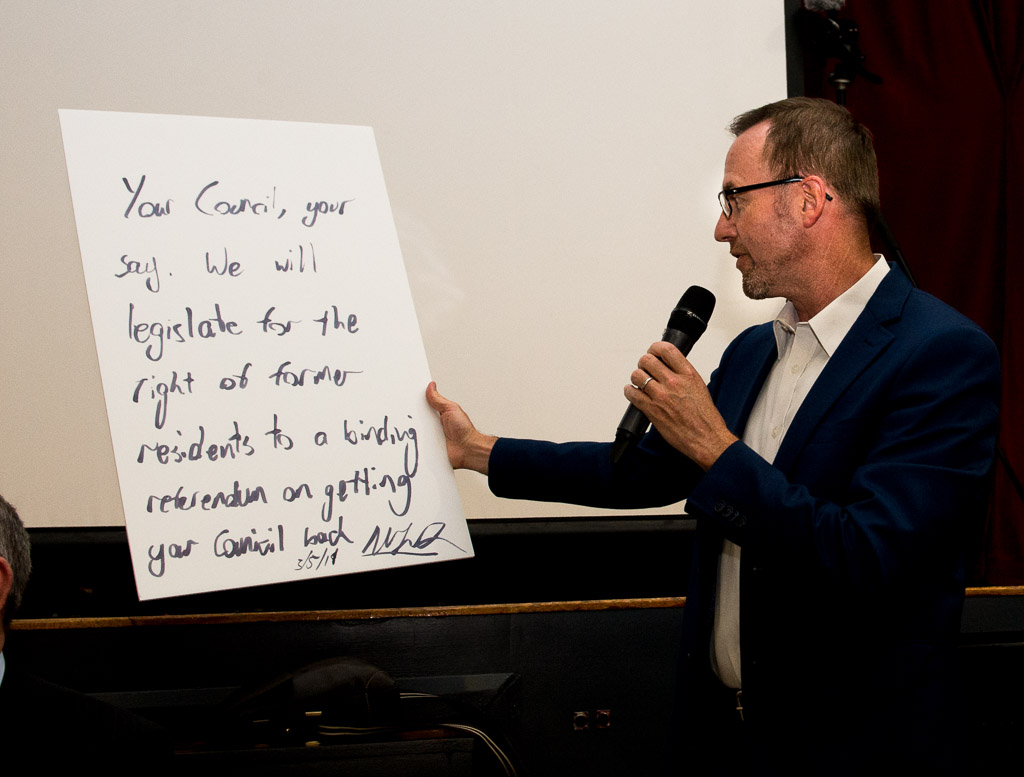 Your Council, your
say. We will
legislate for the
right of former
residents to a binding
referendum on getting
your Council back
3/5/17